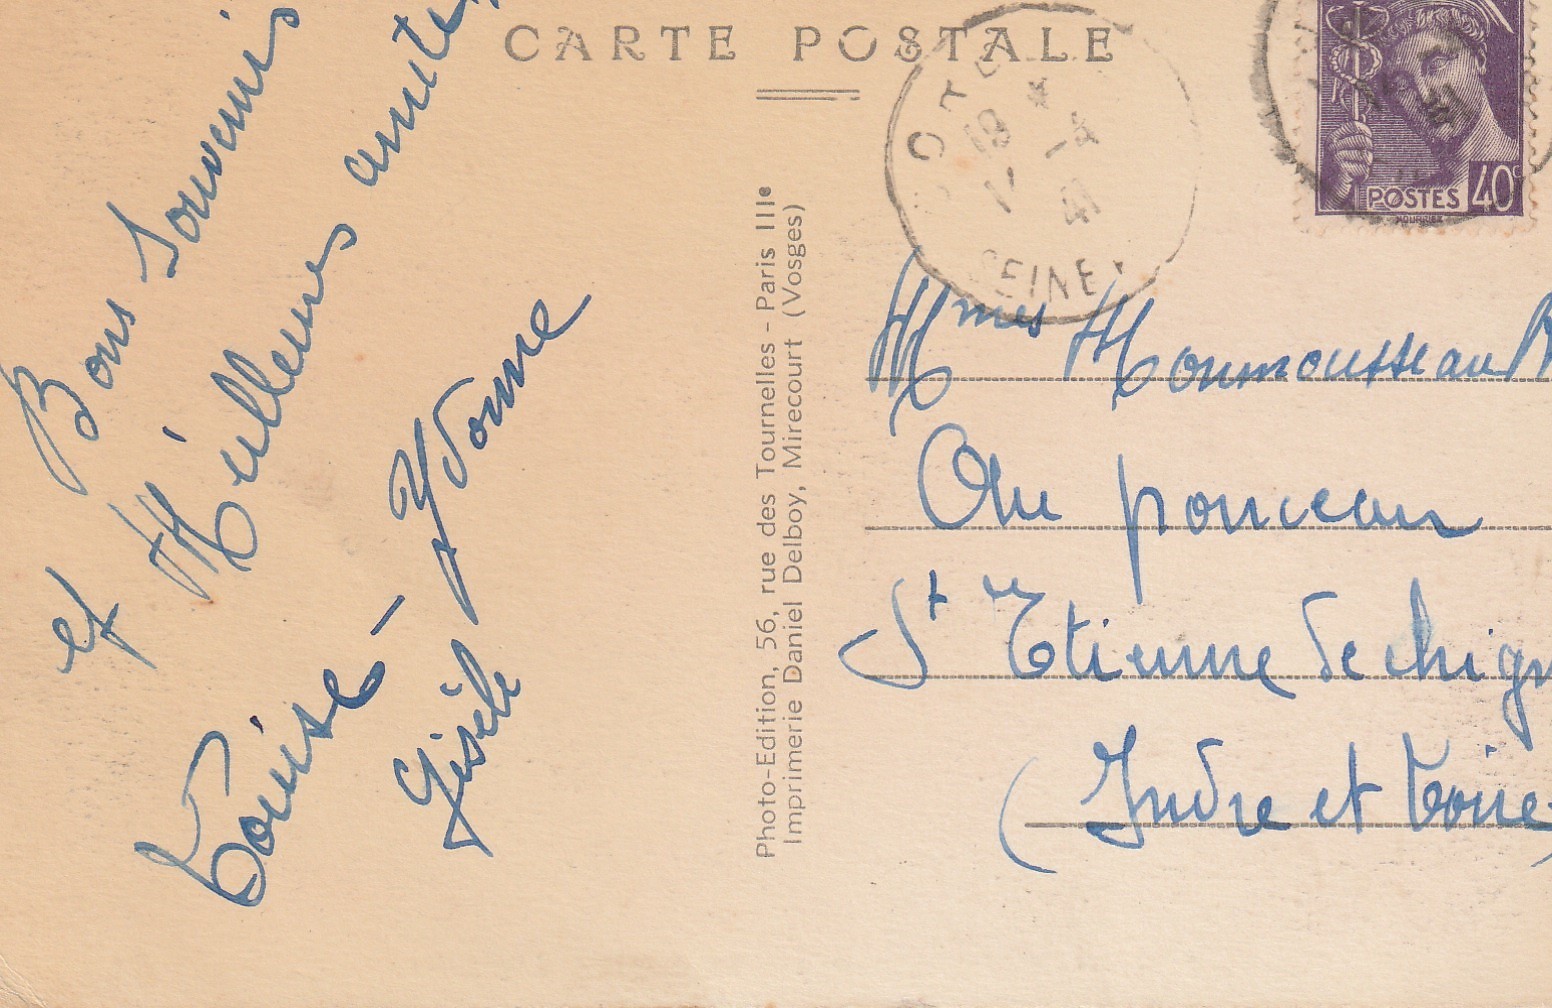 CARTE POSTALE
Bons Souvenirs
et Meilleures amitiés
Louise - Yvonne
Gisèle
Photo-Edition, 56, rue des Tournelles - Paris IIIe
Imprimerie Daniel Delboy, Mirecourt (Vosges)
18
41
SEINE
POSTES 40c
Mmes Monmousseau
Au ponceau
St Etienne de chign
(Indre et Loire)